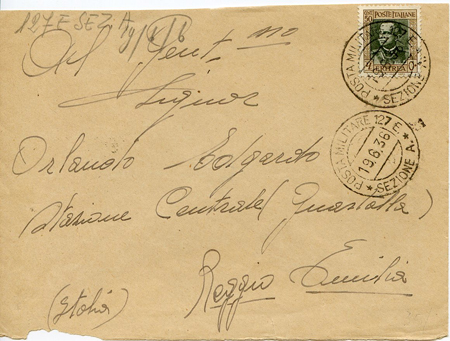 127 E SEZ. A
POSTE ITALIANE
ERITREA
POSTA MILITARE 127 E
SEZIONE A
Al Gent.mo
Signor
POSTA MILITARE 127 E
19.6.36
SEZIONE A
Orlando Edgardo
Stazione Centrale (Guastalla)
Reggio Emilia
(Italia)